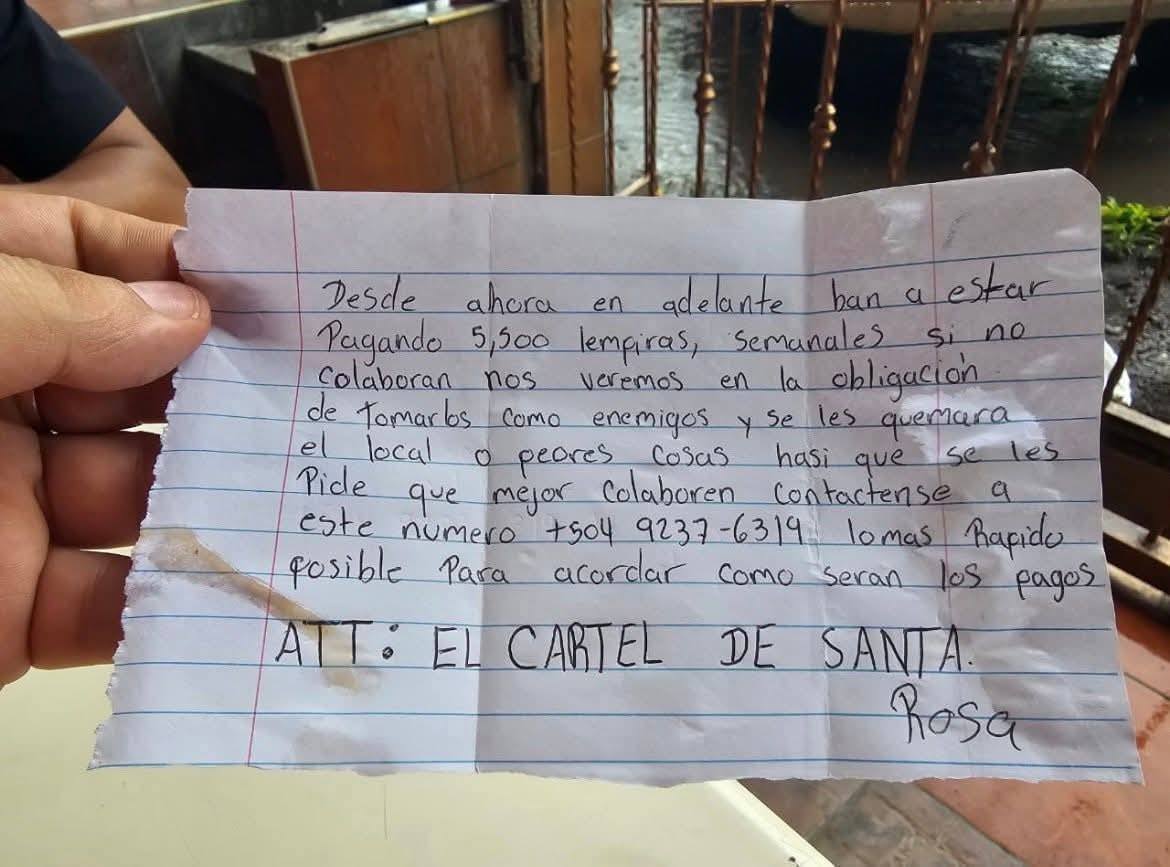 Desde ahora en adelante ban a estar
Pagando 5,500 lempiras, semanales si no
colaboran nos veremos en la obligación
de tomarlos como enemigos y se les quemara
el local o peores cosas hasi que se les
Pide que mejor colaboren contactense a
este numero +504 9237-6319 lomas Rapido
posible Para acordar como seran los pagos
ATT: EL CARTEL DE SANTA.
Rosa